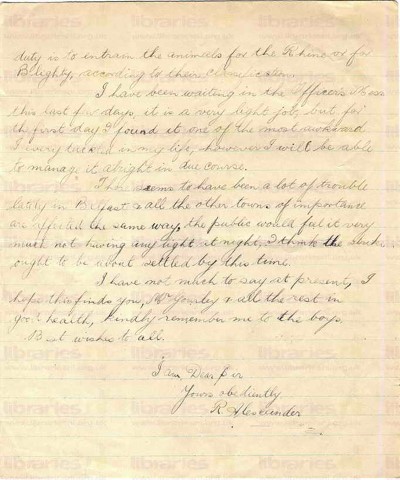 duty is to entrain the animals for the Rhine or for
Blighty, according to their classification.
I have been waiting in the Officer's Mess
this last few days, it is a very light job, but for
the first day I found it one of the most awkward
I every tried in my life, however I will be able
to manage it alright in due course.
There seems to have been a lot of trouble
lately in Belfast & all the other towns of importance
are affected the same way, the public would feel it very
much not having any light at night, I think the strike
ought to be about settled by this time.
I have not much to say at present, I
hope this finds you, Mr Gourley & all the rest in
good health, kindly remember me to the boys.
Best wishes to all.
I am, Dear Sir
Yours obediently
R. Alexander
libraries